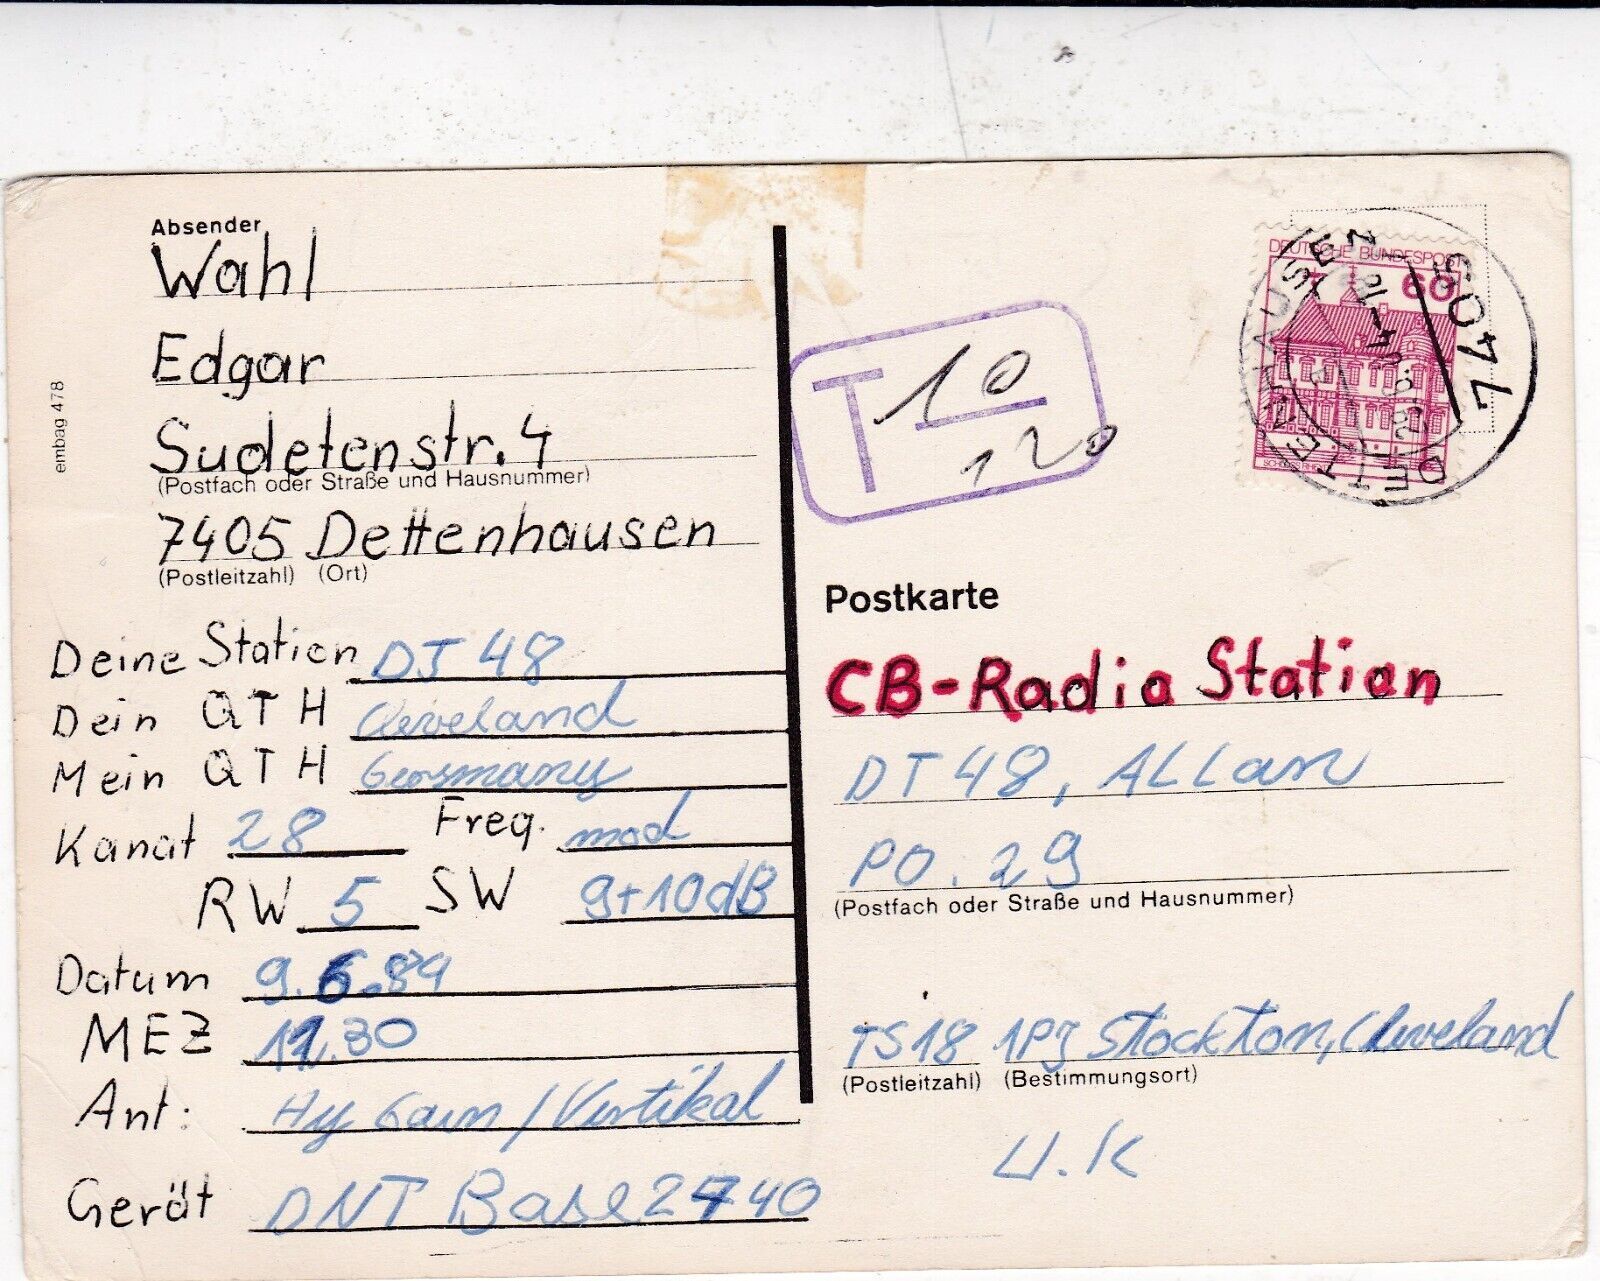 Absender
Wahl
Edgar
Sudetenstr. 4
(Postfach oder Straße und Hausnummer)
7405 Dettenhausen
(Postleitzahl) (Ort)
embag 478
Deine Station DJ 48
Dein QTH Cleveland
Mein QTH Germany
Kanal 28 Freq. mod
RW 5 SW 9+10dB
Datum 9.6.89
MEZ 11.30
Ant: Hy Gain / Vertikal
Gerät DNT Base 2740
T 10
120
DEUTSCHE BUNDESPOST
60
7405
DETTENHAUSEN
Postkarte
CB-Radio Station
DT 48, ALLan
PO. 29
(Postfach oder Straße und Hausnummer)
TS18 1PJ Stockton, Cleveland
(Postleitzahl) (Bestimmungsort)
U.K